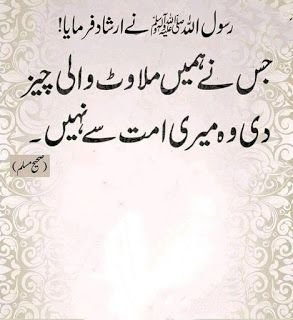 رسول اللہ ﷺ نے ارشاد فرمایا!
جس نے ہمیں ملاوٹ والی چیز
دی وہ میری امت سے نہیں۔
(صحیح مسلم)